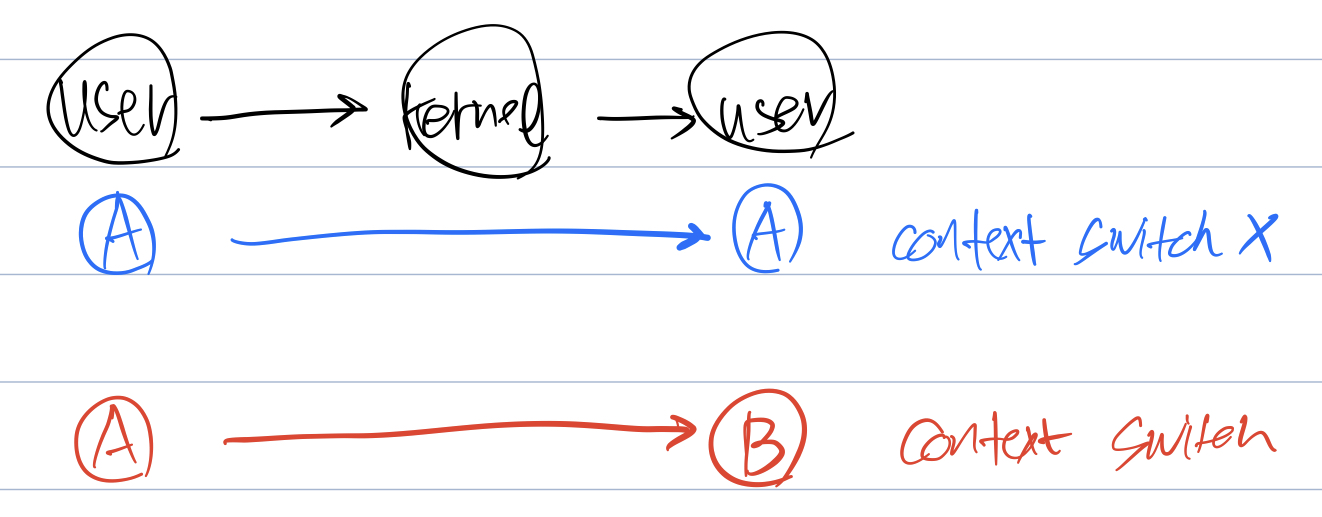 user → kernel → user
A → A context switch X
A → B context switch